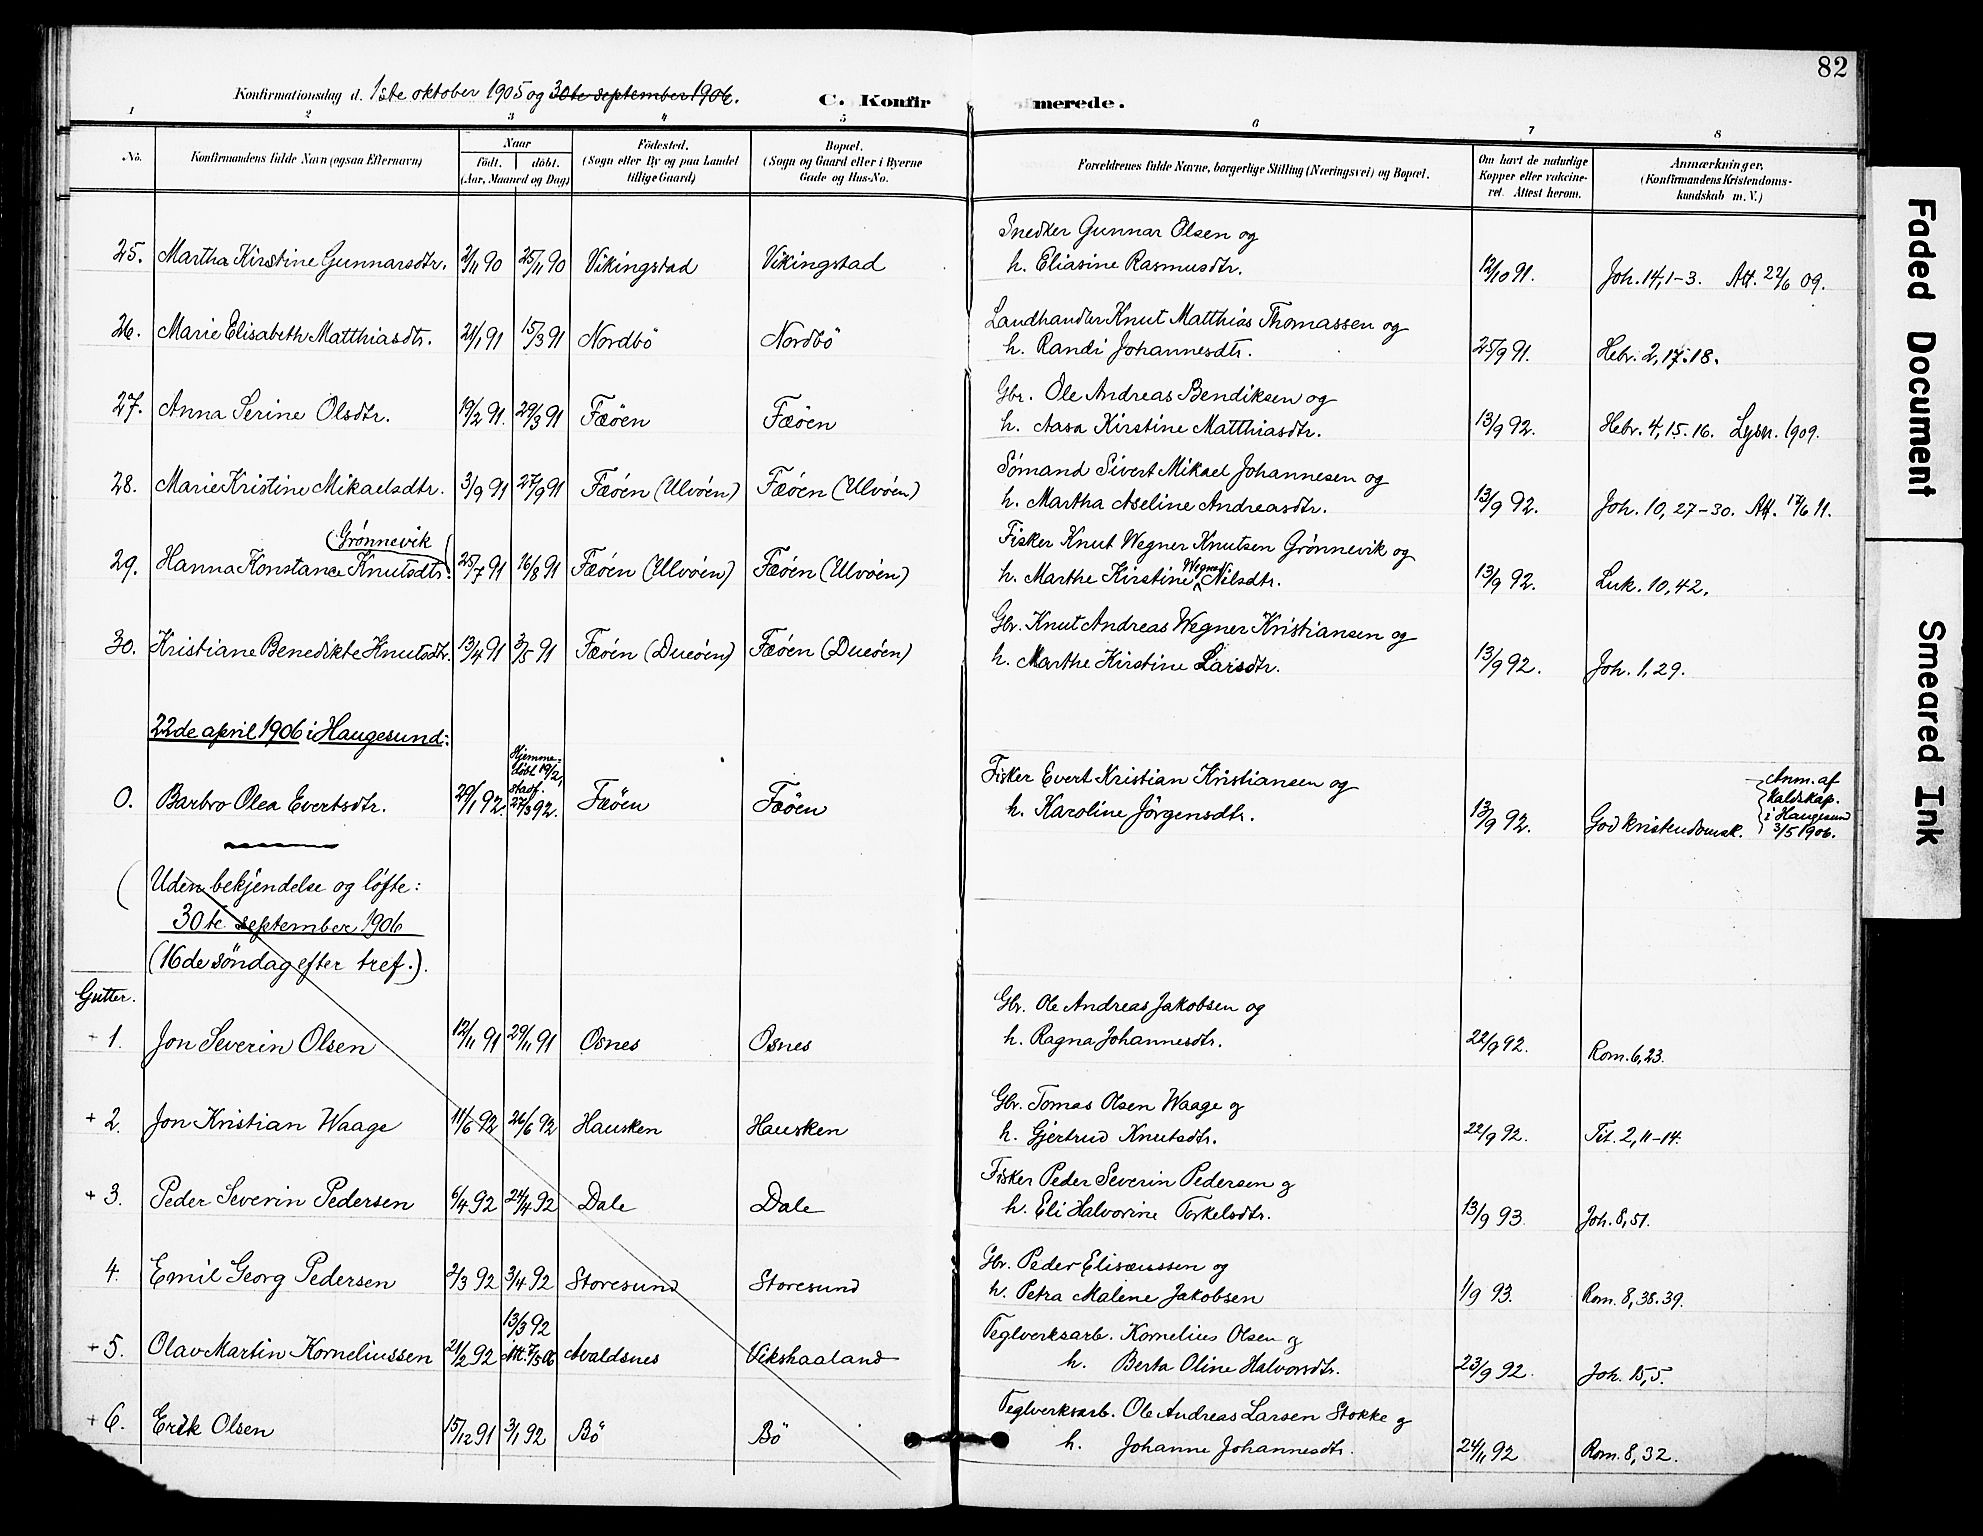 82
Konfirmationsdag d. 1ste oktober 1905 og 30te september 1906.
C. Konfirmerede.
1 2 3 4 5 6 7 8
No. Konfirmandens fulde Navn (ogsaa Efternavn) Naar født. døbt. (Aar, Maaned og Dag) Fødested. (Sogn eller By og paa Landet tillige Gaard) Bopæl. (Sogn og Gaard eller i Byerne Gade og Hus-No. Forældrenes fulde Navne, borgerlige Stilling (Næringsvei) og Bopæl. Om havt de naturlige Kopper eller vakcineret. Attest herom. Anmærkninger, (Konfirmandens Kristendomskundskab m. V.)
Snedker Gunnar Olsen og
25. Martha Kirstine Gunnarsdtr. 2/11 90 25/11 90 Vikingstad Vikingstad h. Eliasine Rasmusdtr. 12/10 91. Joh. 14,1-3. Att. 22/6 09.
Landhandler Knut Matthias Thomassen og
26. Marie Elisabeth Matthiasdtr. 21/1 91 15/3 91 Nordbö Nordbö h. Randi Johannesdtr. 25/9 91. Hebr. 2,17.18.
Gbr. Ole Andreas Bendiksen og
27. Anna Serine Olsdtr. 19/2 91. 29/3 91 Fæöen Fæöen h. Aasa Kirstine Matthiasdtr. 13/9 92. Hebr. 4,15.16. Lysn. 1909.
Sömand Sivert Mikael Johannesen og
28. Marie Kristine Mikaelsdtr. 3/9 91 27/9 91 Fæöen (Ulvöen) Fæöen (Ulvöen) h. Martha Aseline Andreasdtr. 13/9 92. Joh. 10,27-30. Att. 17/6 11.
(Grønnevik
Fisker Knut Wegner Knutsen Grønnevik og
29. Hanna Konstance Knutsdtr. 25/7 91 16/8 91 Fæöen (Ulvöen) Fæöen (Ulvöen) h. Marthe Kirstine Wegner Nilsdtr. 13/9 92. Luk. 10,42.
Gbr. Knut Andreas Wegner Kristiansen og
30. Kristiane Benedikte Knutsdtr. 13/4 91 3/5 91 Fæöen (Dueöen) Fæöen (Dueöen) h. Marthe Kirstine Larsdtr. 13/9 92. Joh. 1,29.
22de april 1906 i Haugesund:
Hjemmedøbt 19/2, stadf.
Fisker Evert Kristian Kristiansen og
0. Barbro Olea Evertsdtr. 29/1 92. 27/3 92. Fæöen Fæöen h. Karoline Jörgensdtr. 13/9 92. God kristendomsk.
Anm. af
kaldskap.
i Haugesund
3/5 1906.
(Uden bekjendelse og løfte:
30te september 1906
(16de söndag efter tref.).
Gutter.
Gbr. Ole Andreas Jakobsen og
1. Jon Severin Olsen 12/11 91 29/11 91 Osnes Osnes h. Ragna Johannesdtr. 22/9 92. Rom. 6,23.
Gbr. Tomas Olsen Waage og
+ 2. Jon Kristian Waage 11/6 92 26/6 92 Hausken Hausken h. Gjertrud Knutsdtr. 22/9 92. Tit. 2,11-14.
Fisker Peder Severin Pedersen og
+ 3. Peder Severin Pedersen 6/4 92 24/4 92 Dale Dale h. Eli Halvorine Torkelsdtr. 13/9 93. Joh. 8,51.
Gbr. Peder Elisæussen og
4. Emil Georg Pedersen 2/3 92 3/4 92 Storesund Storesund h. Petra Malene Jakobsen 1/9 93. Rom. 8,38.39.
13/3 92
Teglverksarb. Kornelius Olsen og
+ 5. Olav Martin Korneliussen 21/2 92 Att. 7/5 06 Avaldsnes Vikshaaland h. Berta Oline Halvorsdtr. 23/9 92. Joh. 15,5.
Teglverksarb. Ole Andreas Larsen Stokke og
+ 6. Erik Olsen 15/12 91 3/1 92 Bö Bö h. Johanne Johannesdtr. 24/11 92 Rom. 8,32.
Faded Document
Smeared Ink